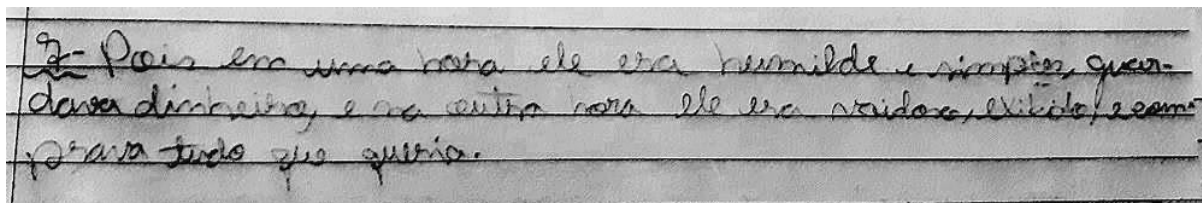 7- Pois em uma hora ele era humilde e simples, guar-
dava dinheiro, e na outra hora ele era vaidoso, exibido, e com-
prava tudo que queria.